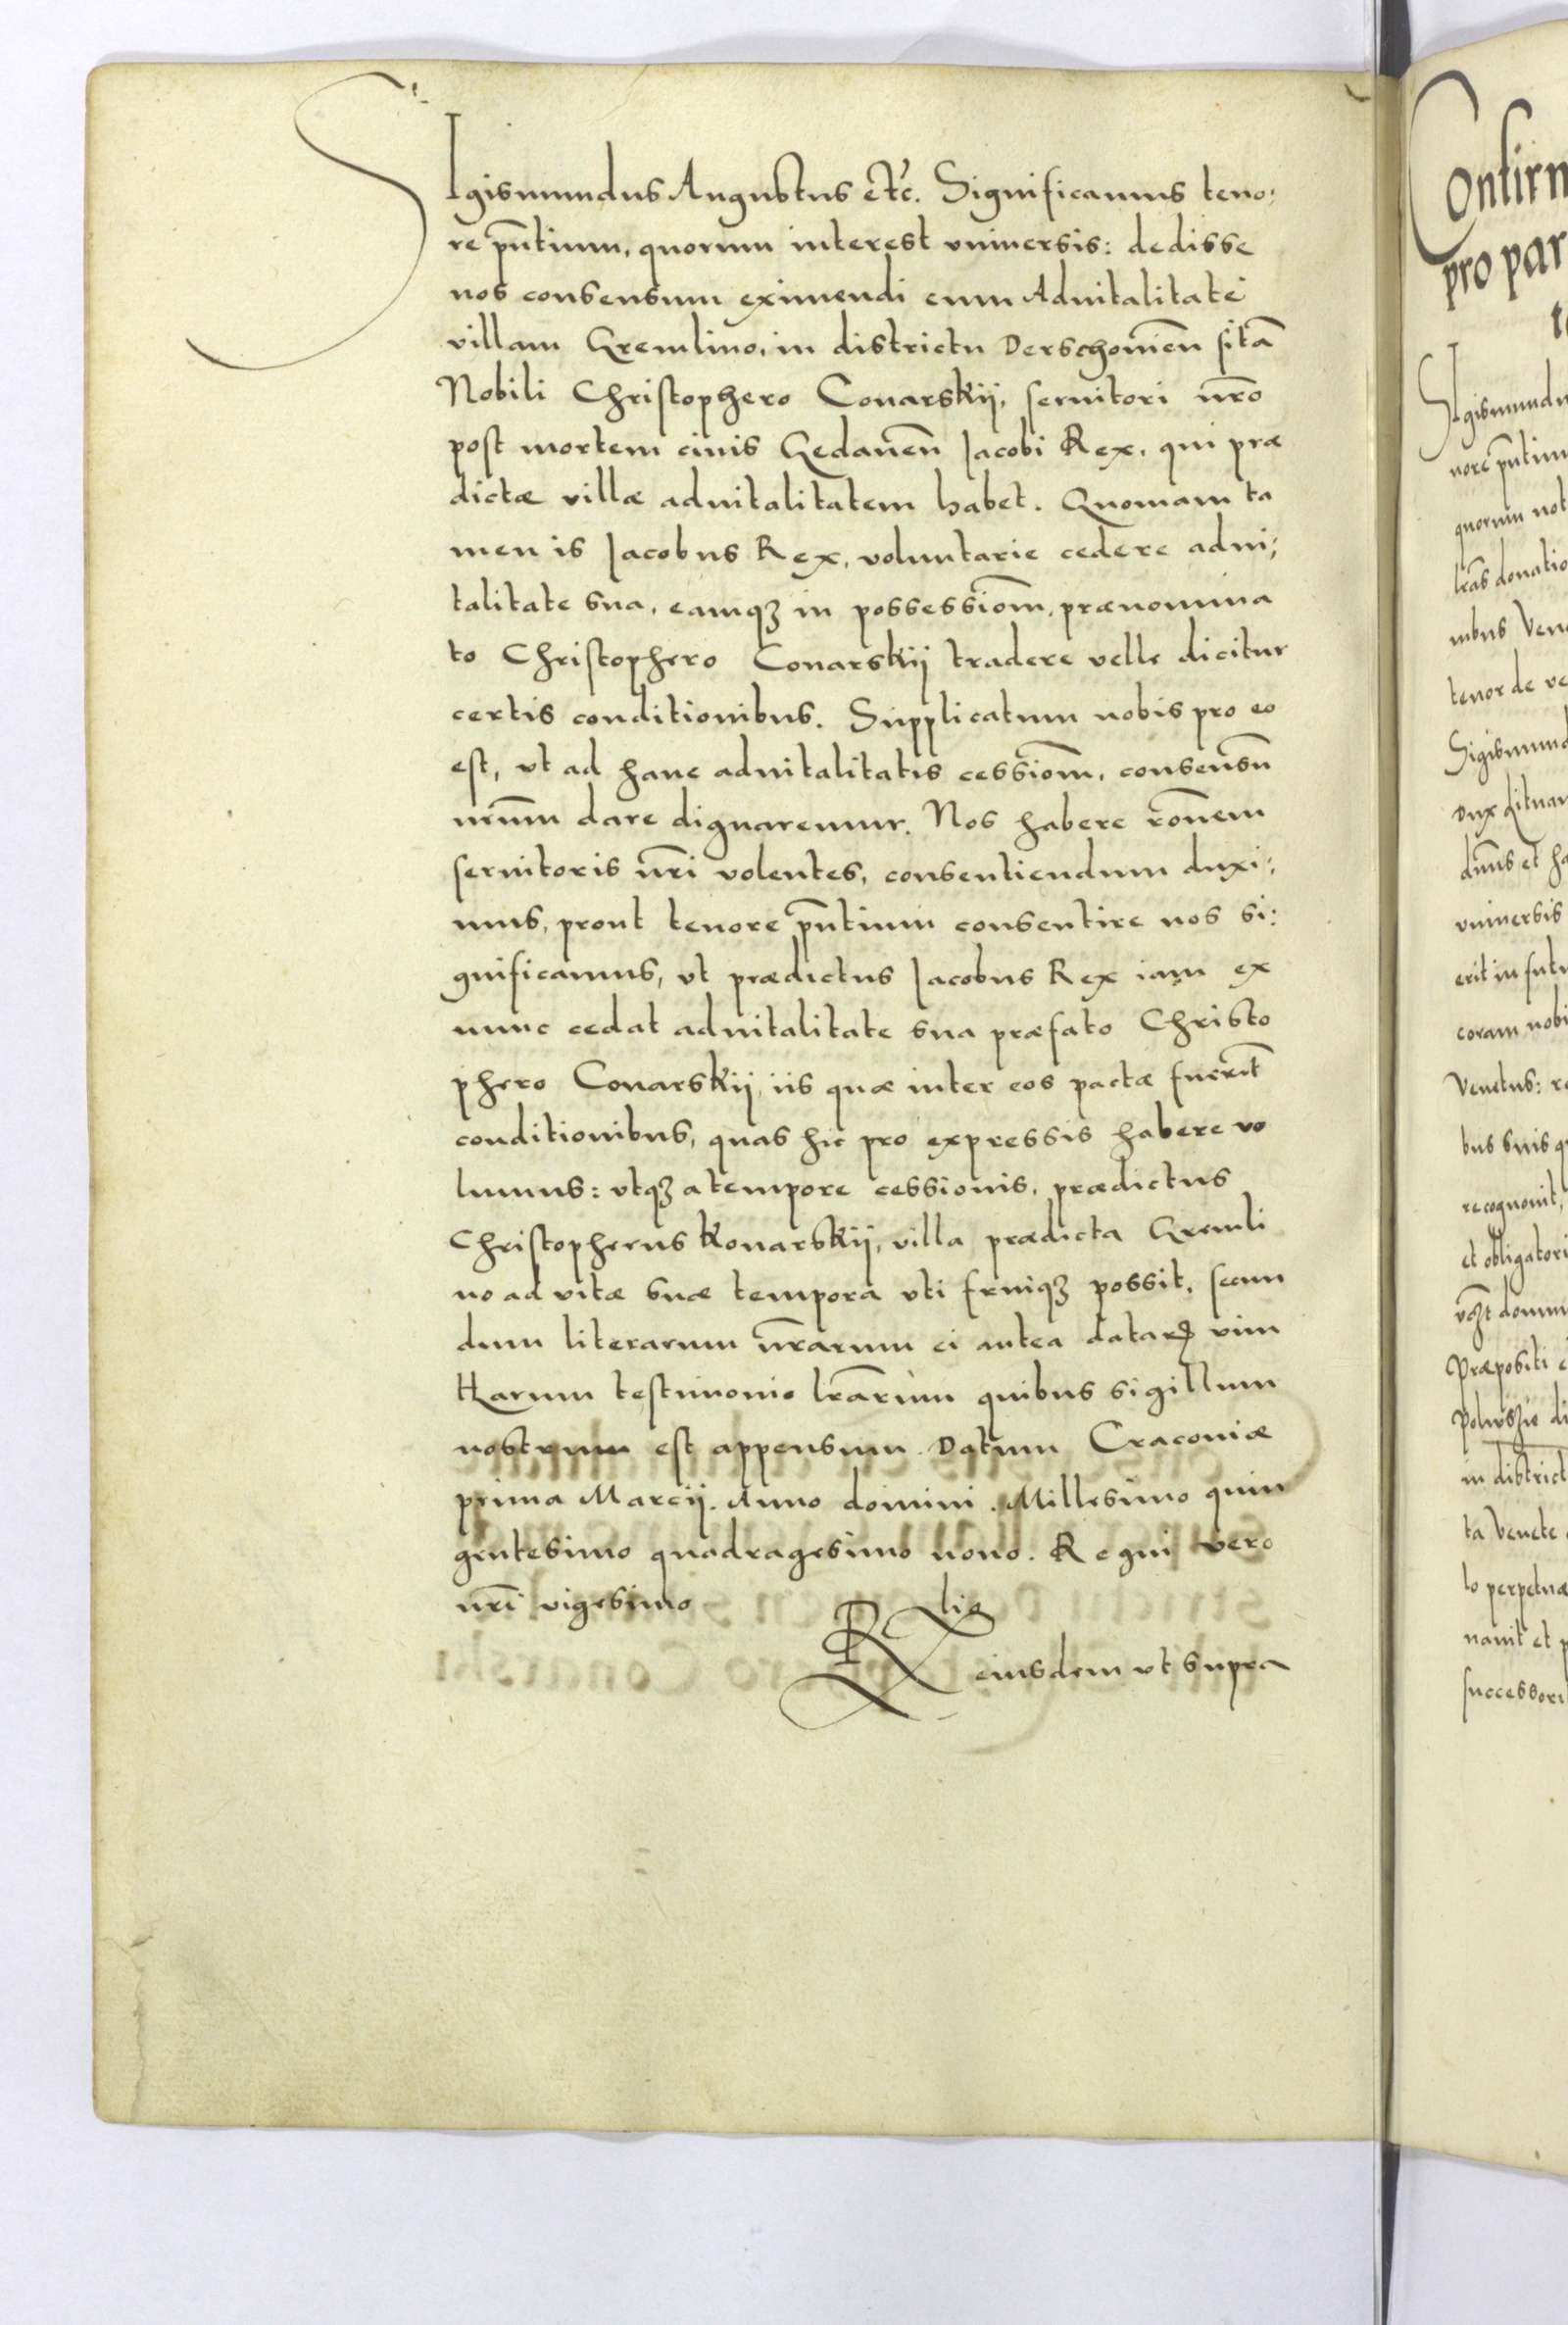 SIgismundus Augustus etc̃. Significamus teno:
re pñtium, quorum interest vniuersis: dedisse
nos consensum eximendi eum Aduitalitate
villam Gremlino, in districtu Derschouieñ sitã
Nobili Christophero Conarskij, seruitori nr̃o
post mortem ciuis Gedaneñ Iacobi Rex, qui præ
dictæ villæ aduitalitatem habet. Quoniam ta
men is Iacobus Rex, voluntarie cedere adui:
talitate sua, eamqꝫ in possessiom̃, prænomina
to Christophero Conarskij tradere velle dicitur
certis conditionibus. Supplicatum nobis pro eo
est, vt ad hanc aduitalitatis cessiom̃, consensũ
nr̃um dare dignaremur. Nos habere rõnem
seruitoris nr̃i volentes, consentiendum duxi:
mus, prout tenore pñtium consentire nos si:
gnificamus, vt prædictus Iacobus Rex iam ex
nunc cedat aduitalitate sua præfato Christo
phero Conarskij, iis quæ inter eos pactæ fuerit̃
conditionibus, quas hic pro expressis habere vo
lumus: vtqꝫ a tempore cessionis, prædictus
Christopherus Konarskij, villa prædicta Gremli
no ad vitæ suæ tempora vti fruiqꝫ possit, secun
dum literarum nr̃arum ei antea datarꝝ vim
Harum testimonio lr̃arum quibus sigillum
nostrum est appensum. Datum Cracouiæ
prima Marcij. Anno domini. Millesimo quin
gentesimo quadragesimo nono. Regni vero
nr̃i vigesimo
Rlio
eiusdem vt supra
Confirm
pro par
SIgismundu
nore pñtium
quorum not
lr̃as donatio
nibus Vene
tenor de ve
Sigismund
dux Lituan
dnũs et ha
vniuersis
erit in futu
coram nobi
Venetus: re
bus suis q
recognouit,
et obligatori
domin
Præpositi
in district
ta Venete
lo perpetuæ
nauit et p
successori